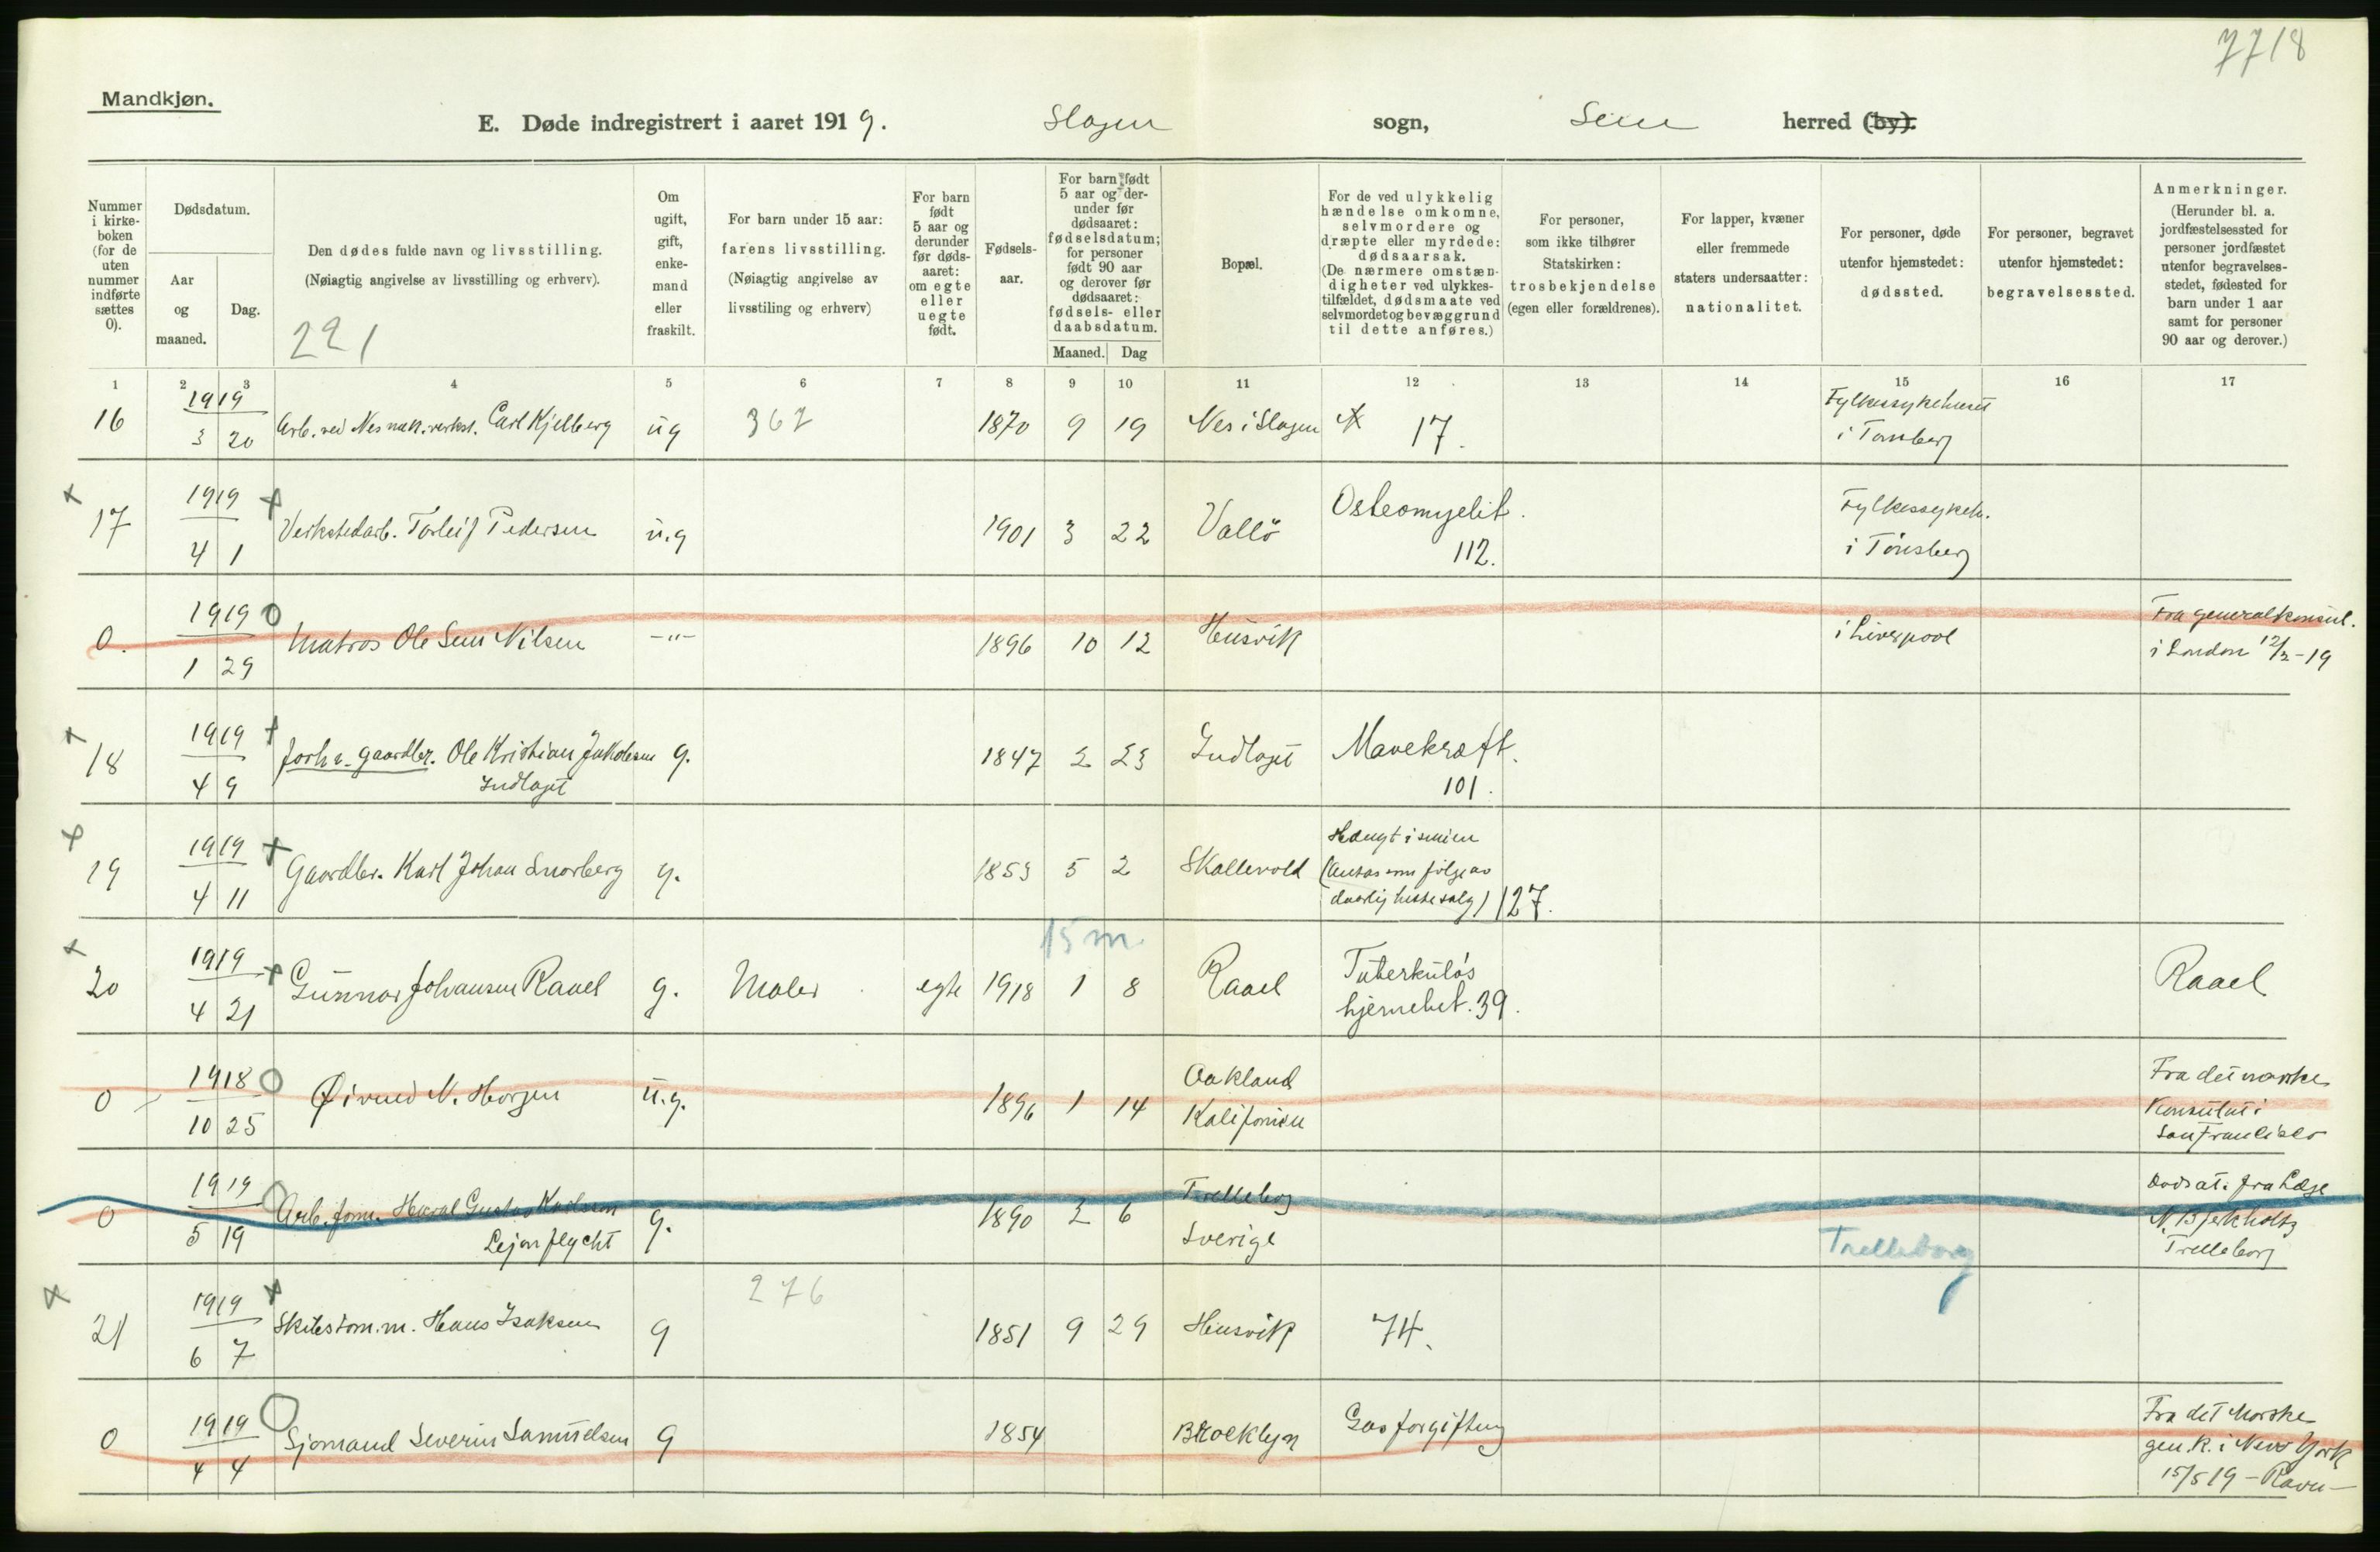 7718
Mandkjøn.
E. Døde indregistrert i aaret 1919. Slagen sogn, Sem herred (by).
Nummer i kirkeboken (for de uten nummer indførte sættes 0).
Dødsdatum.
Aar og maaned.
Dag.
Den dødes fulde navn og livsstilling.
(Nøiagtig angivelse av livsstilling og erhverv).
221
Om ugift, gift, enkemand eller fraskilt.
For barn under 15 aar:
farens livsstilling.
(Nøiagtig angivelse av livsstiling og erhverv)
For barn født 5 aar og derunder før dødsaaret: om egte eller uegte født.
Fødselsaar.
For barn født 5 aar og derunder før dødsaaret: fødselsdatum; for personer født 90 aar og derover før dødsaaret: fødsels- eller daabsdatum.
Maaned. Dag
Bopæl.
For de ved ulykkelig hændelse omkomne, selvmordere og dræpte eller myrdede: dødsaarsak.
(De nærmere omstændigheter ved ulykkestilfældet, dødsmaate ved selvmordet og bevæggrund til dette anføres.)
For personer, som ikke tilhører Statskirken: trosbekjendelse (egen eller forældrenes).
For lapper, kvæner eller fremmede staters undersaatter: nationalitet.
For personer, døde utenfor hjemstedet: dødssted.
For personer, begravet utenfor hjemstedet: begravelsessted.
Anmerkninger.
(Herunder bl. a. jordfæstelsessted for personer jordfæstet utenfor begravelsesstedet, fødested for barn under 1 aar samt for personer 90 aar og derover.)
1 2 3 4 5 6 7 8 9 10 11 12 13 14 15 16 17
16 1919 3 20 Arb. ved Nes mek. verkst. Carl Kjelberg ug 362 1870 9 19 Nes i Slagen 17. Fylkessykehuset
i Tønsberg
17 1919 4 1 Verkstedarb. Torleif Pedersen u.g 1901 3 22 Vallö Osteomyelit. 112. Fylkessykeh.
i Tönsberg
0. 1919 1 29 Matros Ole Sem Nilsen -"- 1896 10 12 Husvik i Liverpool Fra generalkonsul.
i London 12/2-19
18 1919 4 9 Forh.v. gaardbr. Ole Kristian Jakobsen g. 1847 2 23 Indlaget Mavekræft. 101.
Indlaget
19 1919 4 11 Gaardbr. Karl Johan Snorberg g. 1853 5 2 Skallevold Hængt i smien
(Antas som følge av
daarlig hestesalg) 127.
15 m.
20 1919 4 21 Gunnar Johansen Raael g. Maler egte 1918 1 8 Raael Tuberkuløs
hjernebet. 39. Raael
0 1918 10 25 Øivind N. Horgen u.g. 1896 1 14 Oakland
Kalifornien Fra det norske
Konsulat i
San Francisco
0 1919 5 19 Arb. form. Gustav Karlsson g. 1890 2 6 Trelleborg
Sverige Trelleborg Dødsat. fra Læge
N. Bjerkholtz
Trelleborg
21 1919 6 7 Skibstøm.m. Hans Isaksen g 276 1851 9 29 Husvik 74.
0 1919 4 4 Sjømand Severin Samuelsen g 1854 Brooklyn Gasforgiftning Fra det Norske
gen.k. i New York
15/5 19 - Ravn -